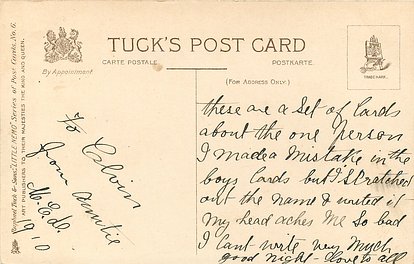 TUCK'S POST CARD
CARTE POSTALE
POSTKARTE.
By Appointment
(FOR ADDRESS ONLY.)
TRADE MARK.
Raphael Tuck & Sons' "LITTLE NEMO" Series of Post Cards, No. 6.
ART PUBLISHERS TO THEIR MAJESTIES THE KING AND QUEEN.
To Calvin
from Auntie
1910
these are a set of Cards
about the one Person
I made a Mistake in the
boys Cards but I Scratched
out the name & writed it -
my head aches Me So bad
I Cant write very Much
good night - love to all